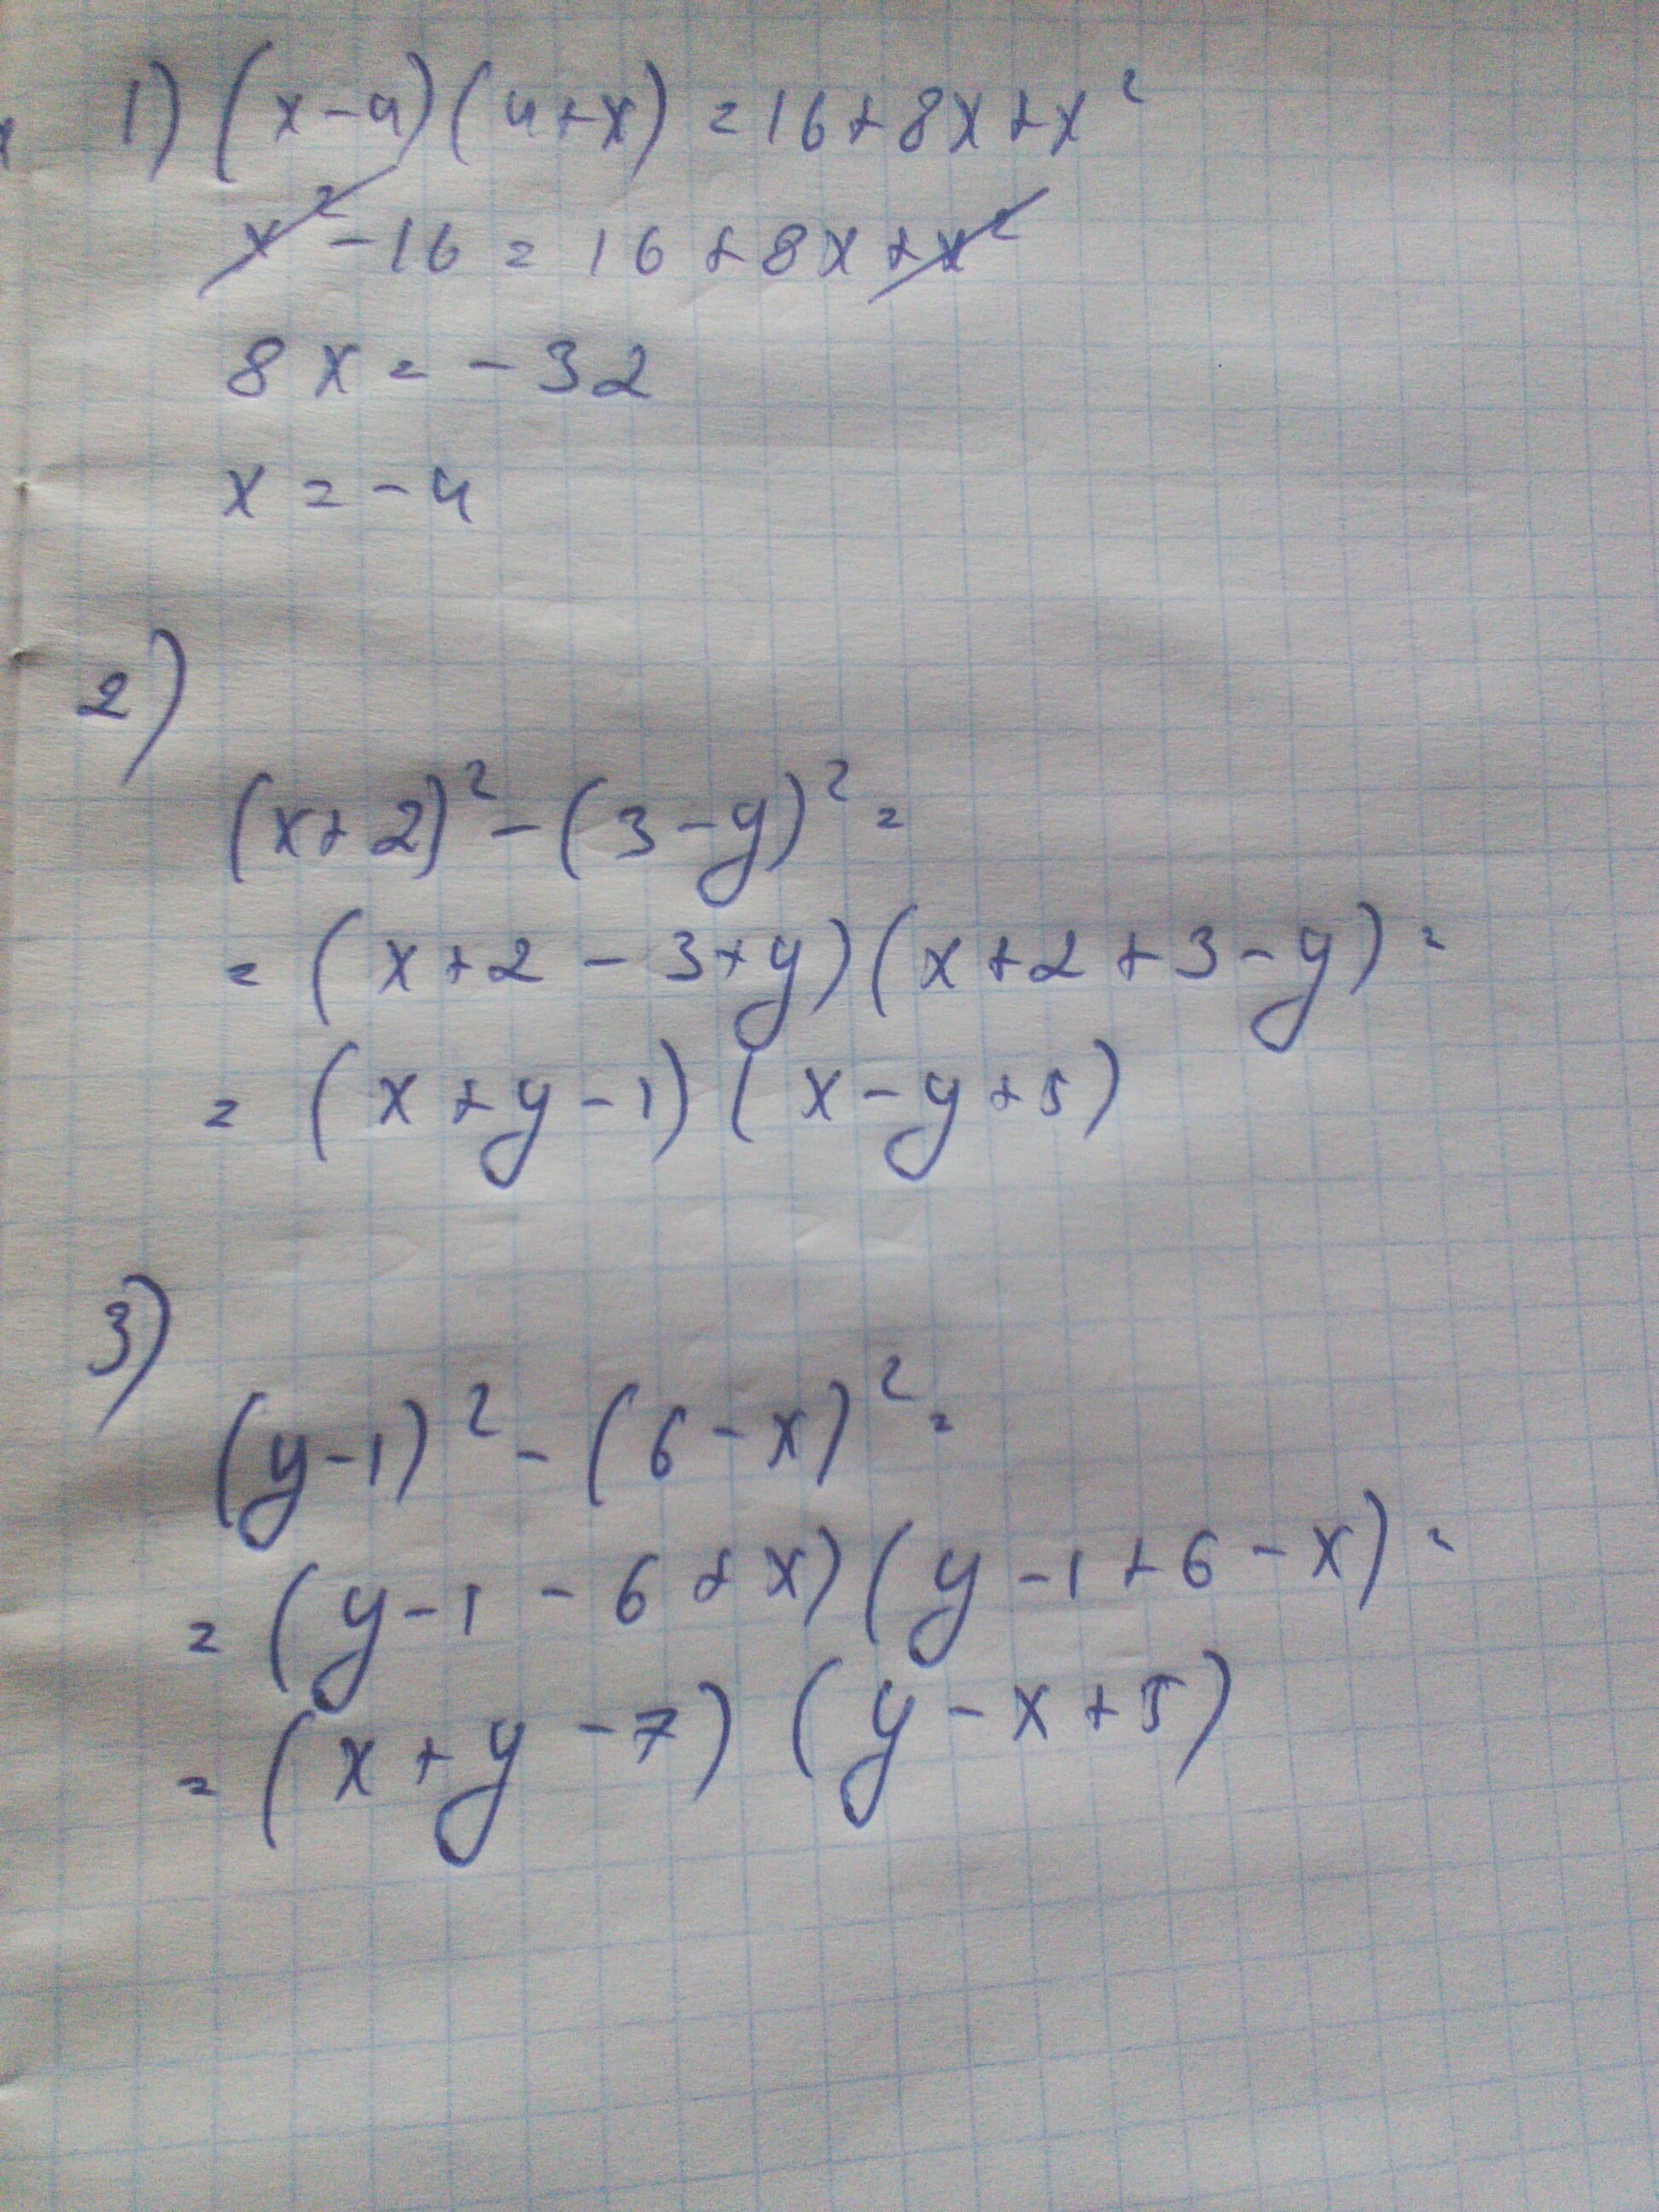 1) (x-4)(4+x) = 16+8x+x²
x² - 16 = 16 + 8x + x²
8x = -32
x = -4
2)
(x+2)² - (3-y)² =
= (x+2-3+y)(x+2+3-y) =
= (x+y-1)(x-y+5)
3)
(y-1)² - (6-x)² =
= (y-1-6+x)(y-1+6-x) =
= (x+y-7)(y-x+5)